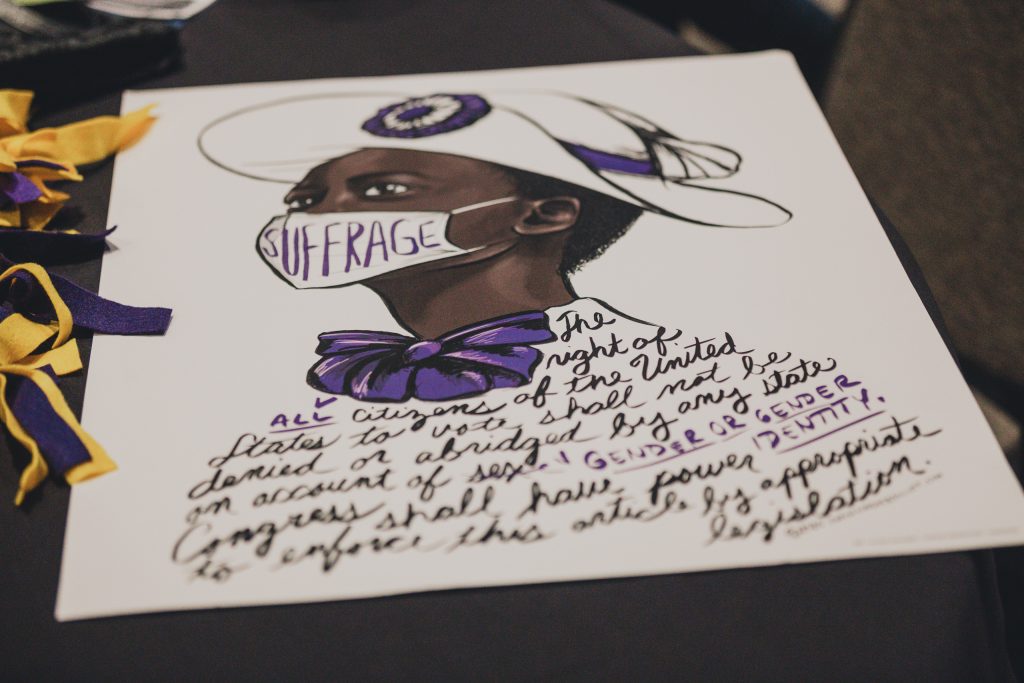 SUFFRAGE
The
right of
ALL citizens of the United
States to vote shall not be
denied or abridged by any state
on account of sex GENDER OR GENDER IDENTITY.
Congress shall have power
to enforce this article by appropriate
legislation.